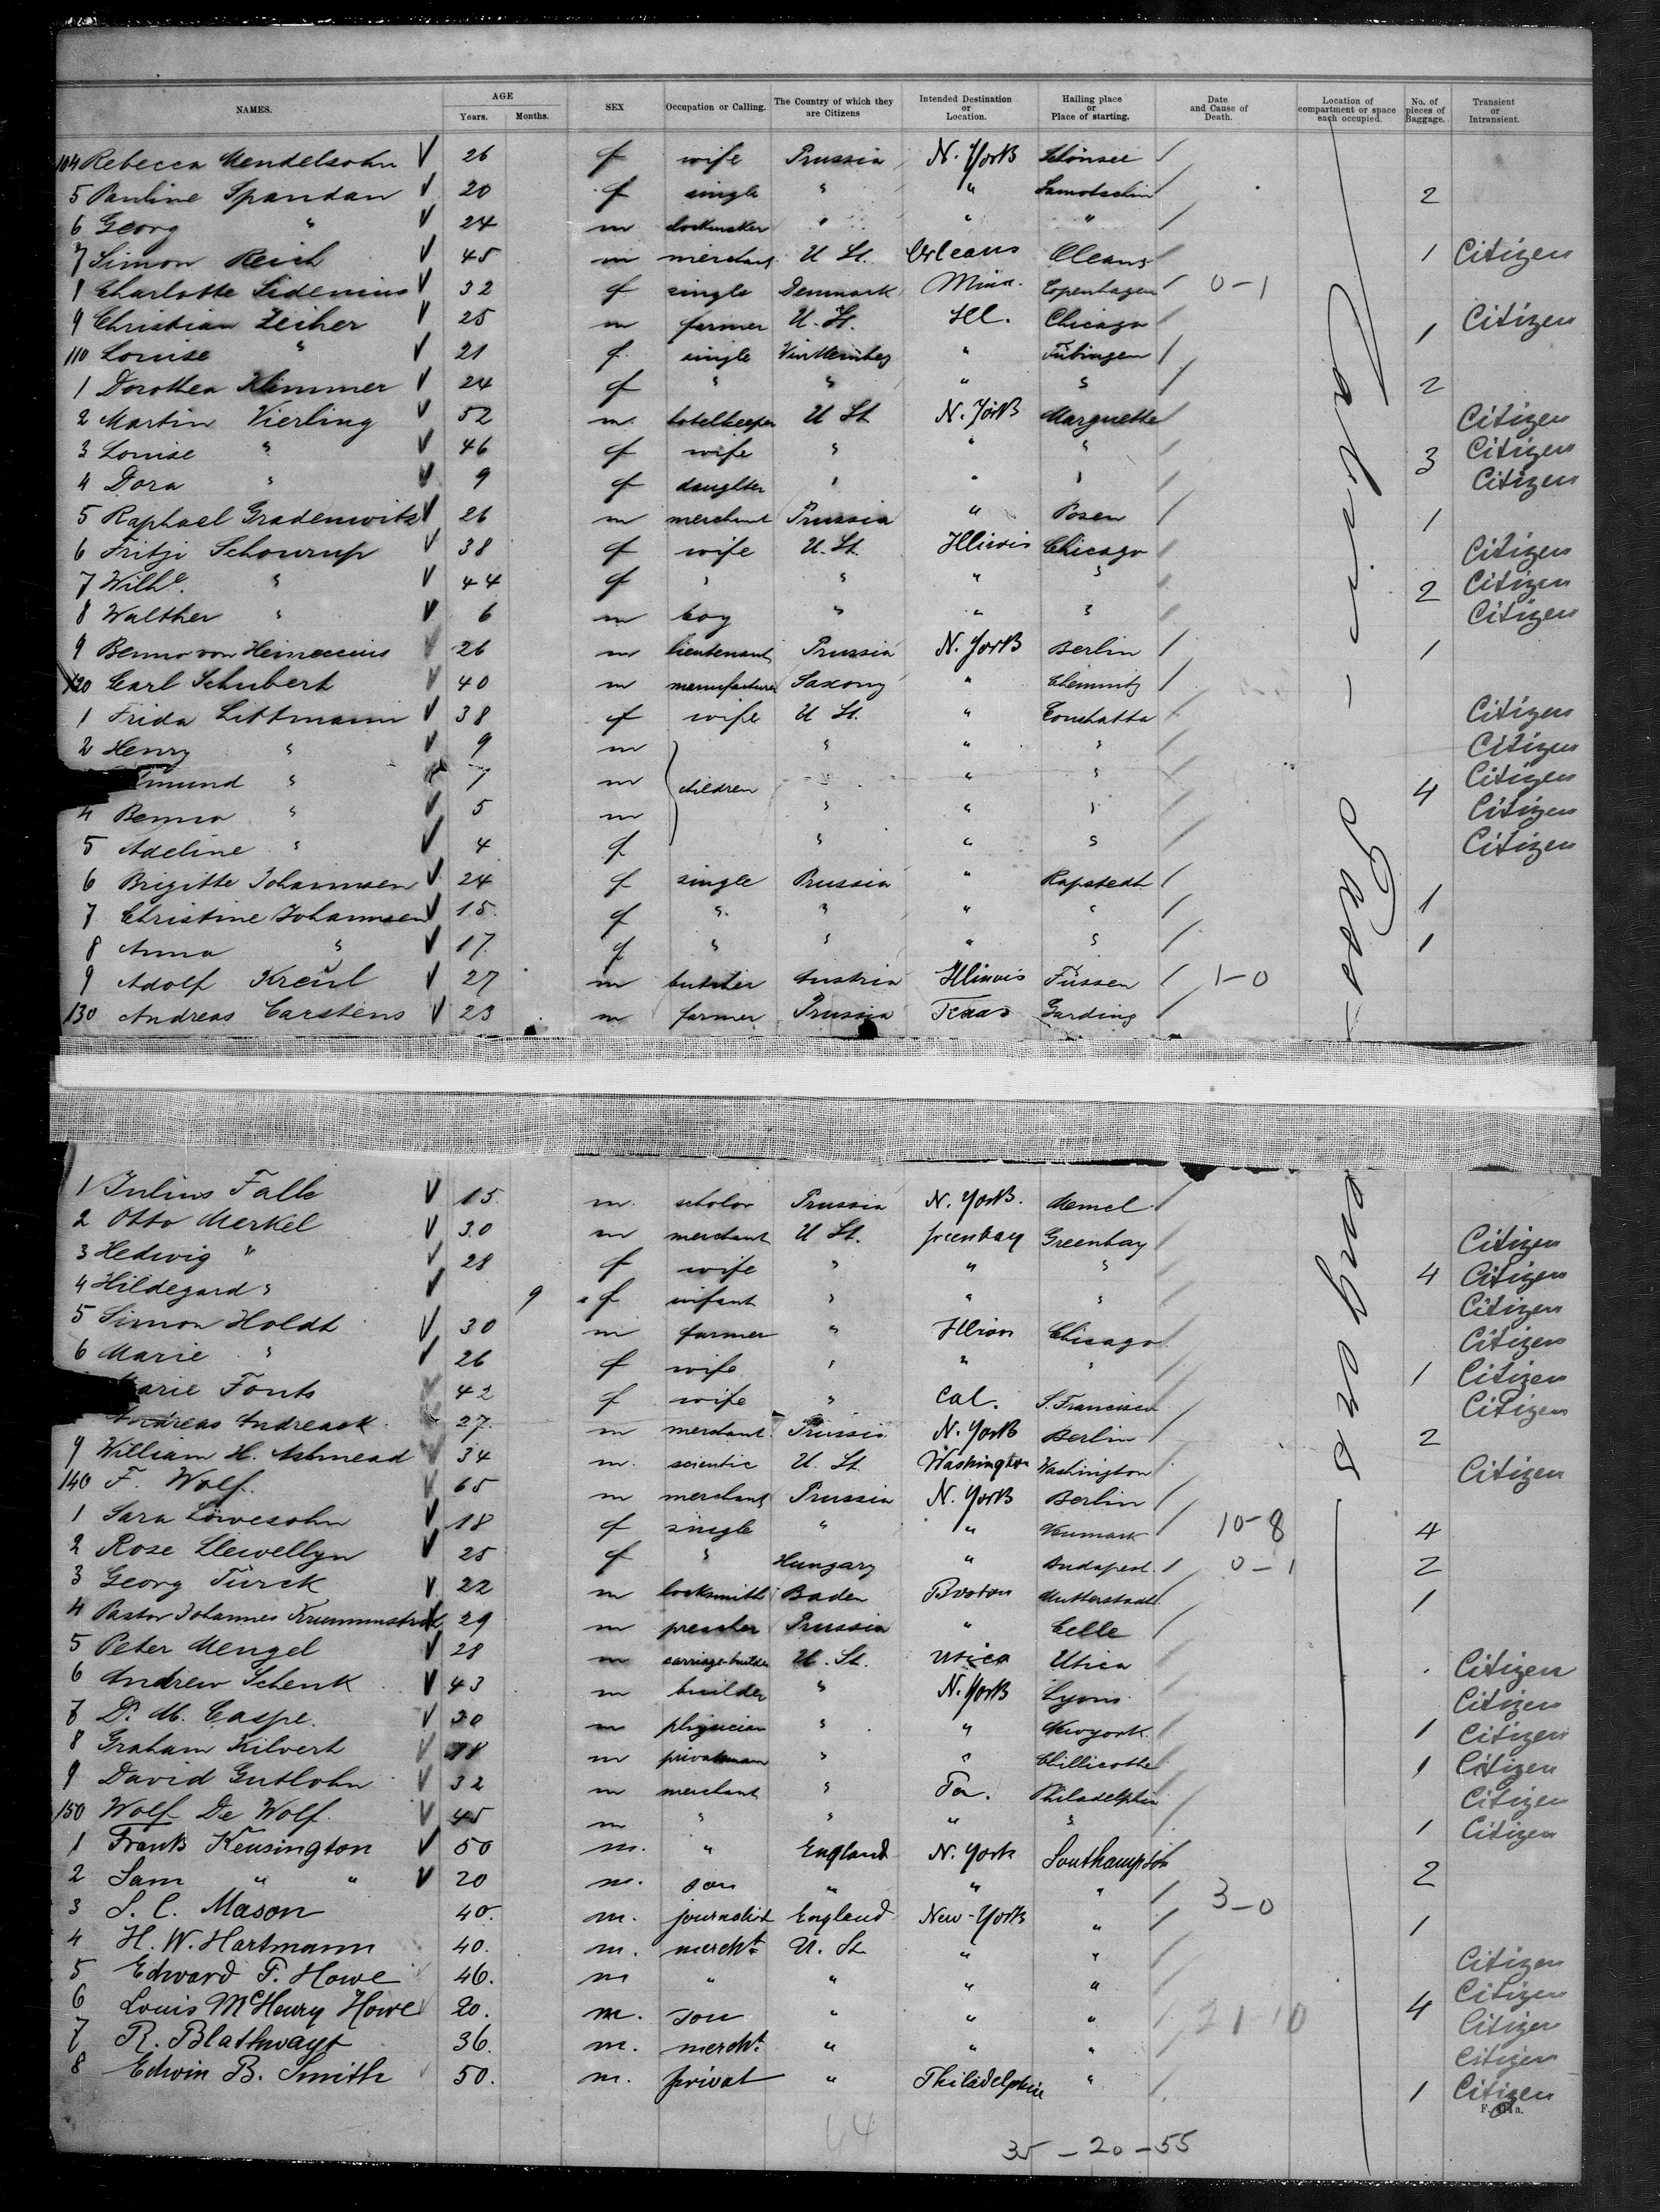 NAMES. AGE Years. Months. SEX Occupation or Calling. The Country of which they are Citizens Intended Destination or Location. Hailing place or Place of starting. Date and Cause of Death. Location of compartment or space each occupied. No. of pieces of Baggage. Transient or Intransient.
104 Rebecca Mendelsohn √ 26 f wife Prussia N. York Schönsee /
5 Pauline Spandau √ 20 f single " " Samotschin / 2
6 Georg " √ 24 m " " " /
7 Simon Reich √ 45 m merchant U St. Orleans Oleans / 1 Citizen
8 Charlotte Sidenius √ 32 f single Denmark Minn. Copenhagen / 0-1
9 Christian Zeiher √ 25 m farmer U. St. Ill. Chicago / 1 Citizen
110 Louise " √ 21 f single Württemberg " Tübingen /
1 Dorothea Klimmer √ 24 f " " " " / 2
2 Martin Vierling √ 52 m. hotelkeeper U St N. York Marquette / Citizen
3 Louise " √ 46 f wife " " " / 3 Citizen
4 Dora " √ 9 f daughter " " " / Citizen
5 Raphael Gradenwitz √ 26 m merchant Prussia " Posen / 1
6 Fritzi Schourup √ 38 f wife U. St. Illinois Chicago / Citizen
7 Wilhe. " √ 44 f " " " " / 2 Citizen
8 Walther " √ 6 m boy " " " / Citizen
9 Benno von Heineccius √ 26 m lieutenant Prussia N. York Berlin / 1
120 Carl Schubert √ 40 m manufacturer Saxony " Chemnitz /
1 Frida Littmann √ 38 f wife U St. " Coushatta / Citizen
2 Henry " √ 9 m " " " / Citizen
" √ 7 m children " " " / 4 Citizen
4 Benno " √ 5 m " " " / Citizen
5 Adeline " √ 4 f " " " / Citizen
6 Brigitte Johannsen √ 24 f single Prussia " Rapstedt /
7 Christine Johannsen √ 15. f " " " " / 1
8 Anna " √ 17. f " " " " / 1
9 Adolf √ 27 m butcher Austria Illinois Füssen / 1-0
130 Andreas Carstens √ 23 m farmer Prussia Texas Garding /
1 Julius Falk √ 15. m. scholar Prussia N. York. Memel /
2 Otto Merkel √ 30 m merchant U St. Greenbay Greenbay / Citizen
3 Hedwig " √ 28 f wife " " " / 4 Citizen
4 Hildegard " √ 9 f infant " " " / Citizen
5 Simon Holdt √ 30 m farmer " Chicago / Citizen
6 Marie " √ 26 f wife " " " / 1 Citizen
Marie Fonts √ 42 f wife " Cal. S. Francisco / Citizen
Andreas Andreack √ 27. m merchant Prussia N. York Berlin / 2
9 William H. Ashmead √ 34 m. scientic U. St. Washington Washington Citizen
140 F. Wolf. √ 65 m merchant Prussia N. York Berlin /
1 Sara Löwesohn √ 18 f single " " Neumark / 10-8 4
2 Rose Llewellyn √ 25 f " Hungary " Budapest. / 0-1 2
3 Georg Türck √ 22 m locksmith Baden Boston Mutterstadt 1
4 Pastor Johannes √ 29 m preacher Prussia " Celle /
5 Peter Mengel √ 28 m carriage-builder U. St. Utica Utica Citizen
6 Andrew Schenk √ 43 m builder " N. York Lyons Citizen
7 Dr. M. Caspe. √ 30 m physician " " Newyork. 1 Citizen
8 Graham Kilvert √ 18 m privatman " " Chillicothe 1 Citizen
9 David Gutlohn √ 32 m merchant " Pa. Philadelphia / Citizen
150 Wolf De Wolf. √ 45 m " " " " / 1 Citizen
1 Frank Kensington √ 50 m. " England N. York Southampton 2
2 Sam " " √ 20 m. son " " " / 3-0
3 S. C. Mason 40. m. journalist England New-York " / 1
4 H. W. Hartmann 40. m. mercht. U. St. " " / Citizen
5 Edward F. Howe 46. m " " " " / Citizen
6 Louis McHenry Howe 20. m. son " " " / 21-10 4 Citizen
7 R. Blathwayt 36. m. mercht. " " " / Citizen
8 Edwin B. Smith 50. m. privat " Philadelphia " / 1 Citizen
44 35 - 20 - 55